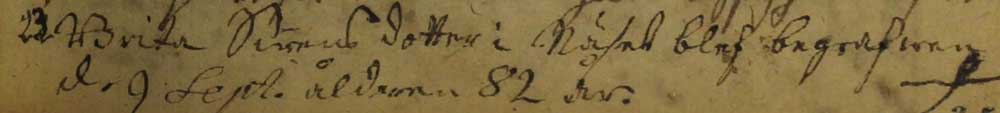 23 Brita Svens dotter i Näset blef begrafwen
d. 9 Sept. ålderen 82 år.